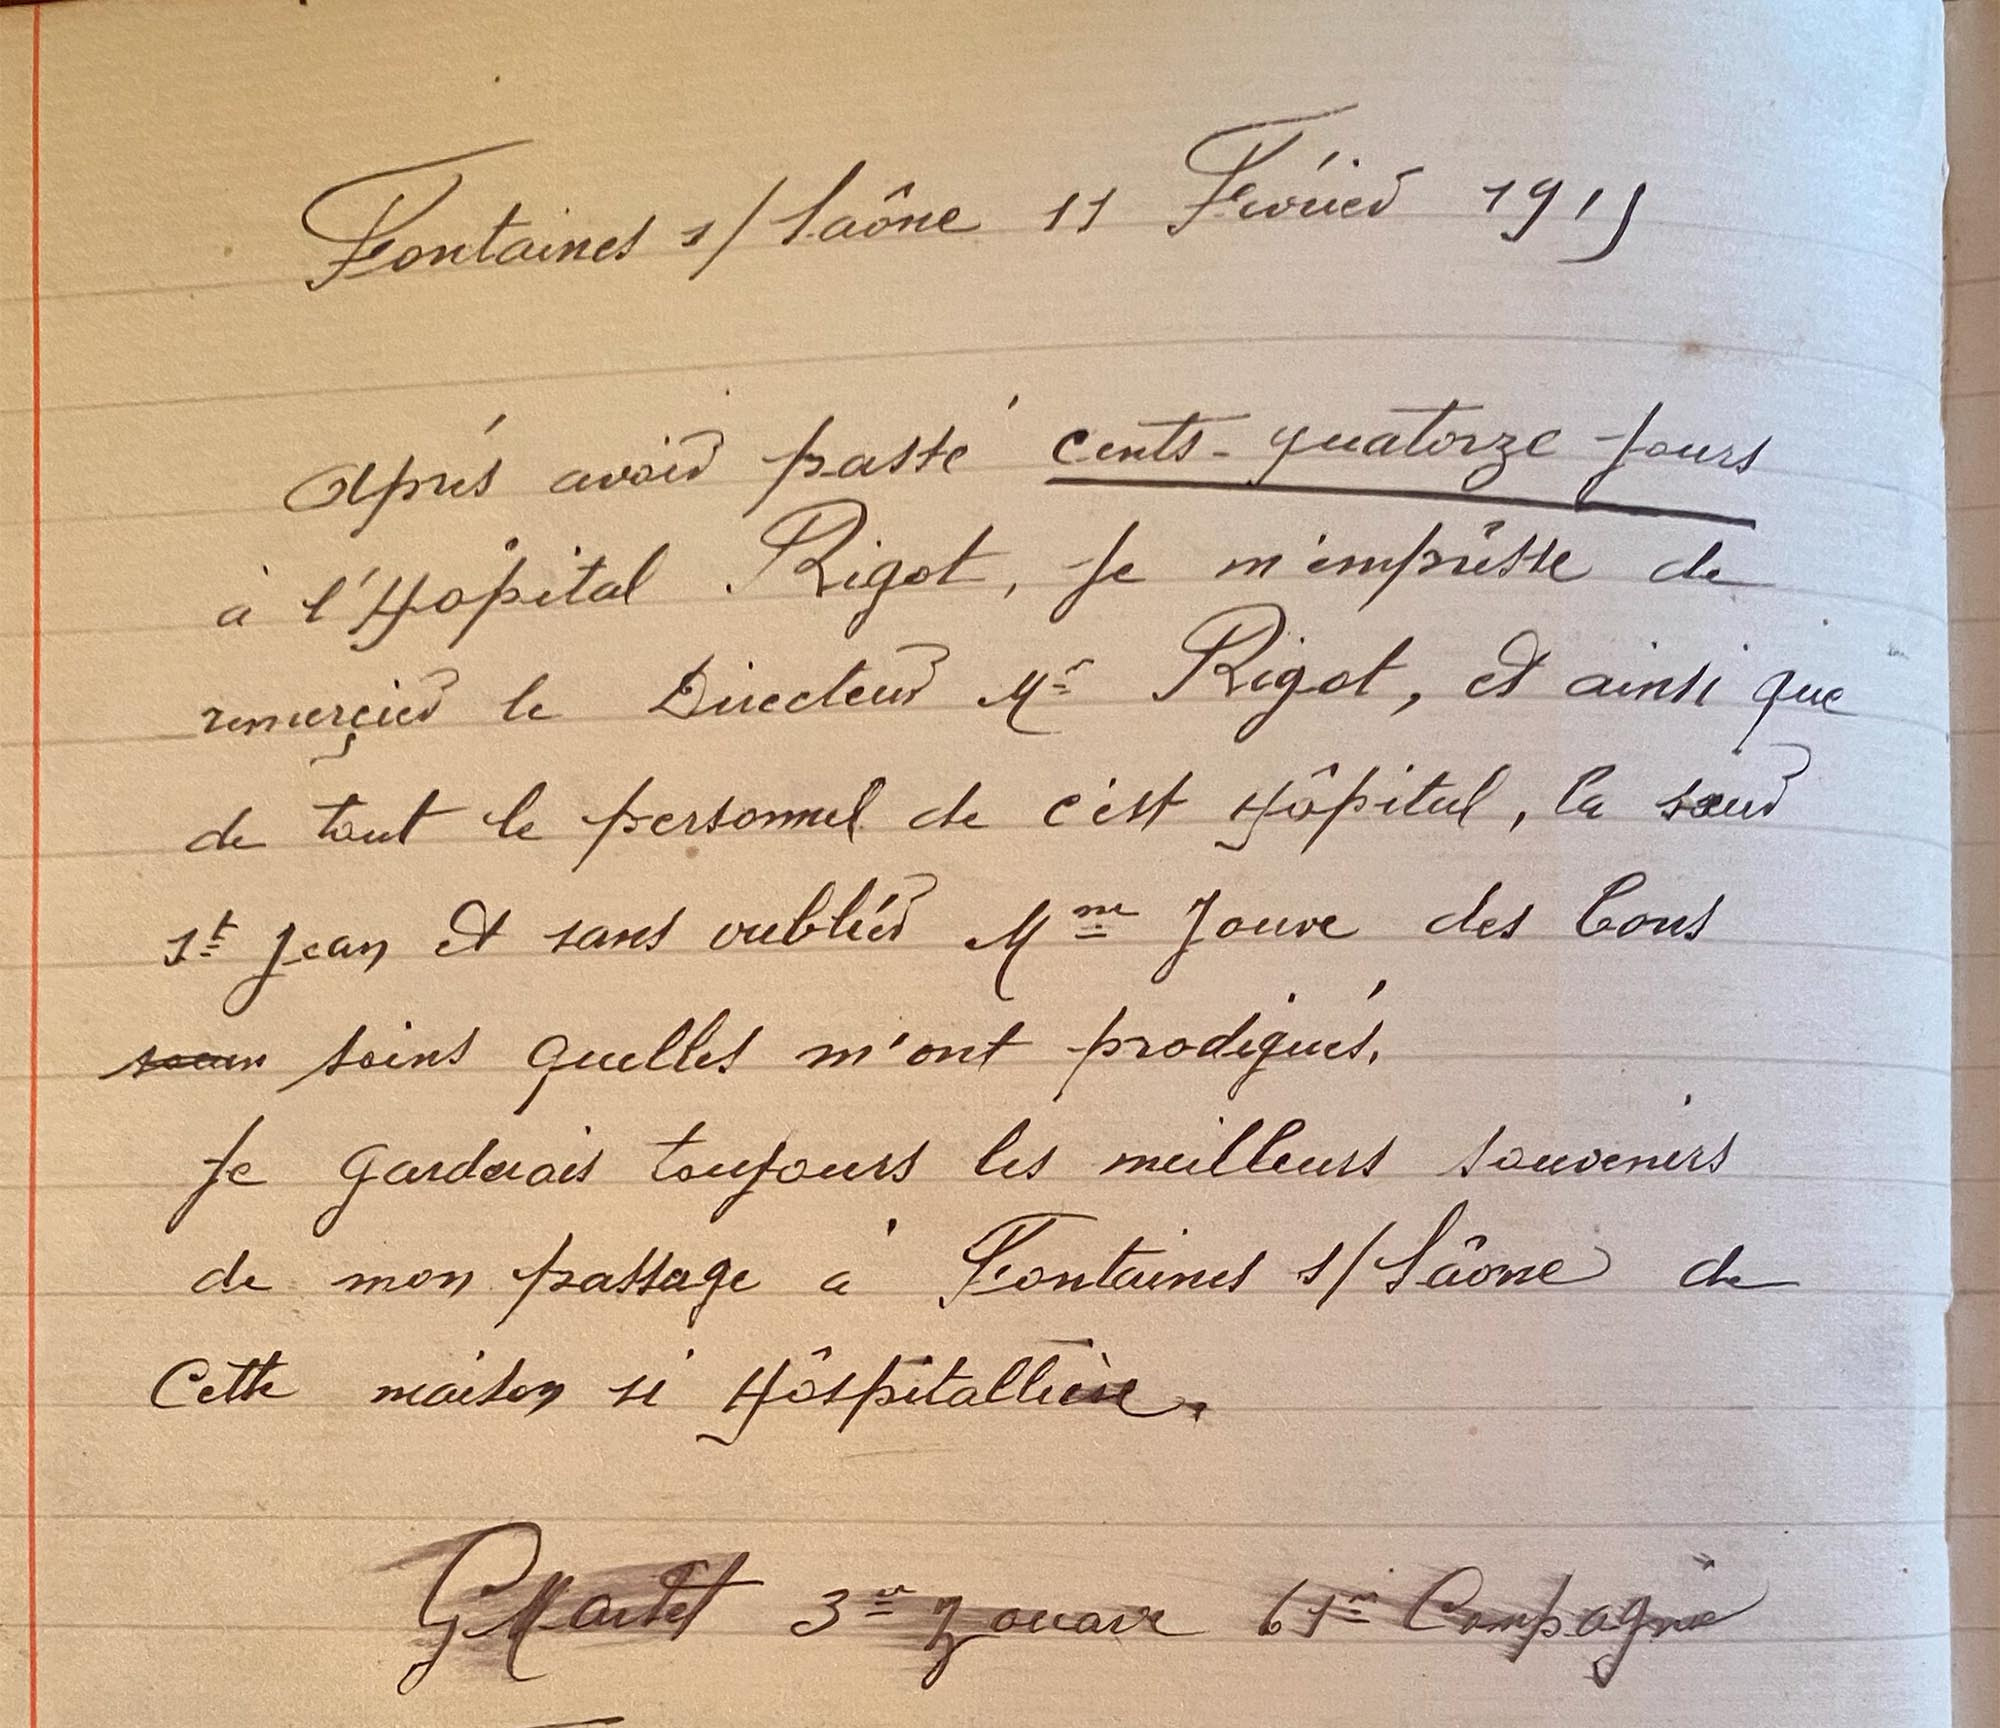 Fontaines s/Saône 11 Février 1915
Après avoir passé cents-quatorze jours
à l'Hopital Rigot, je m'emprêsse de
remerçier le Directeur Mr Rigot, et ainsi que
de tout le personnel de c'est Hôpital, la sœur
St Jean et sans oubliér Mme Jouve des bons
soins quelles m'ont prodigués.
Je garderais toujours les meilleurs souvenirs
de mon passage à Fontaines s/Saône de
Cette maison si Hôspitallière.
3me Zouave 61me Compagnie